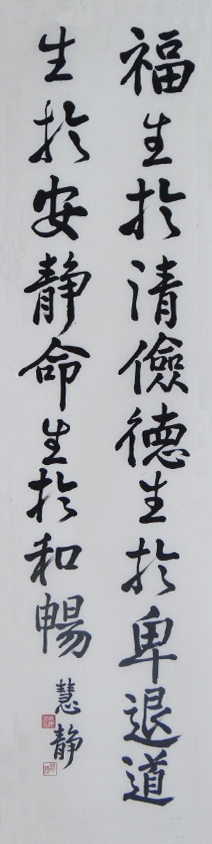 福生於清儉德生於卑退道
生於安靜命生於和暢
慧靜